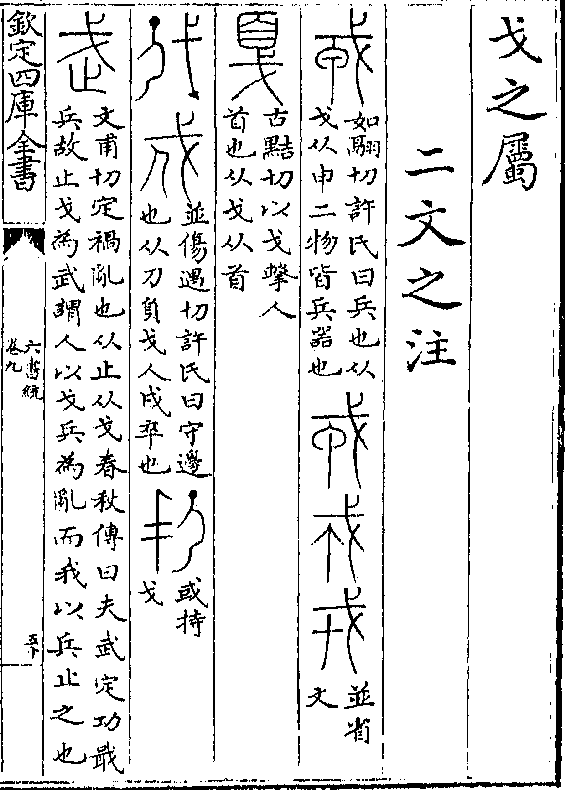 戈之屬
二文之注
戎
如切許氏曰兵也从
戈从申二物皆兵器也
戎戎戎
並省
文
戛
古黠切以戈擊人
首也从戈从首
戍戍
並傷遇切許氏曰守邊
也从刀負戈人戍卒也
或持
戈
武
文甫切定禍亂也从止从戈春秋傳曰夫武定功戢
兵故止戈為武謂人以戈兵為亂而我以兵止之也
欽定四庫全書
六書統
卷九